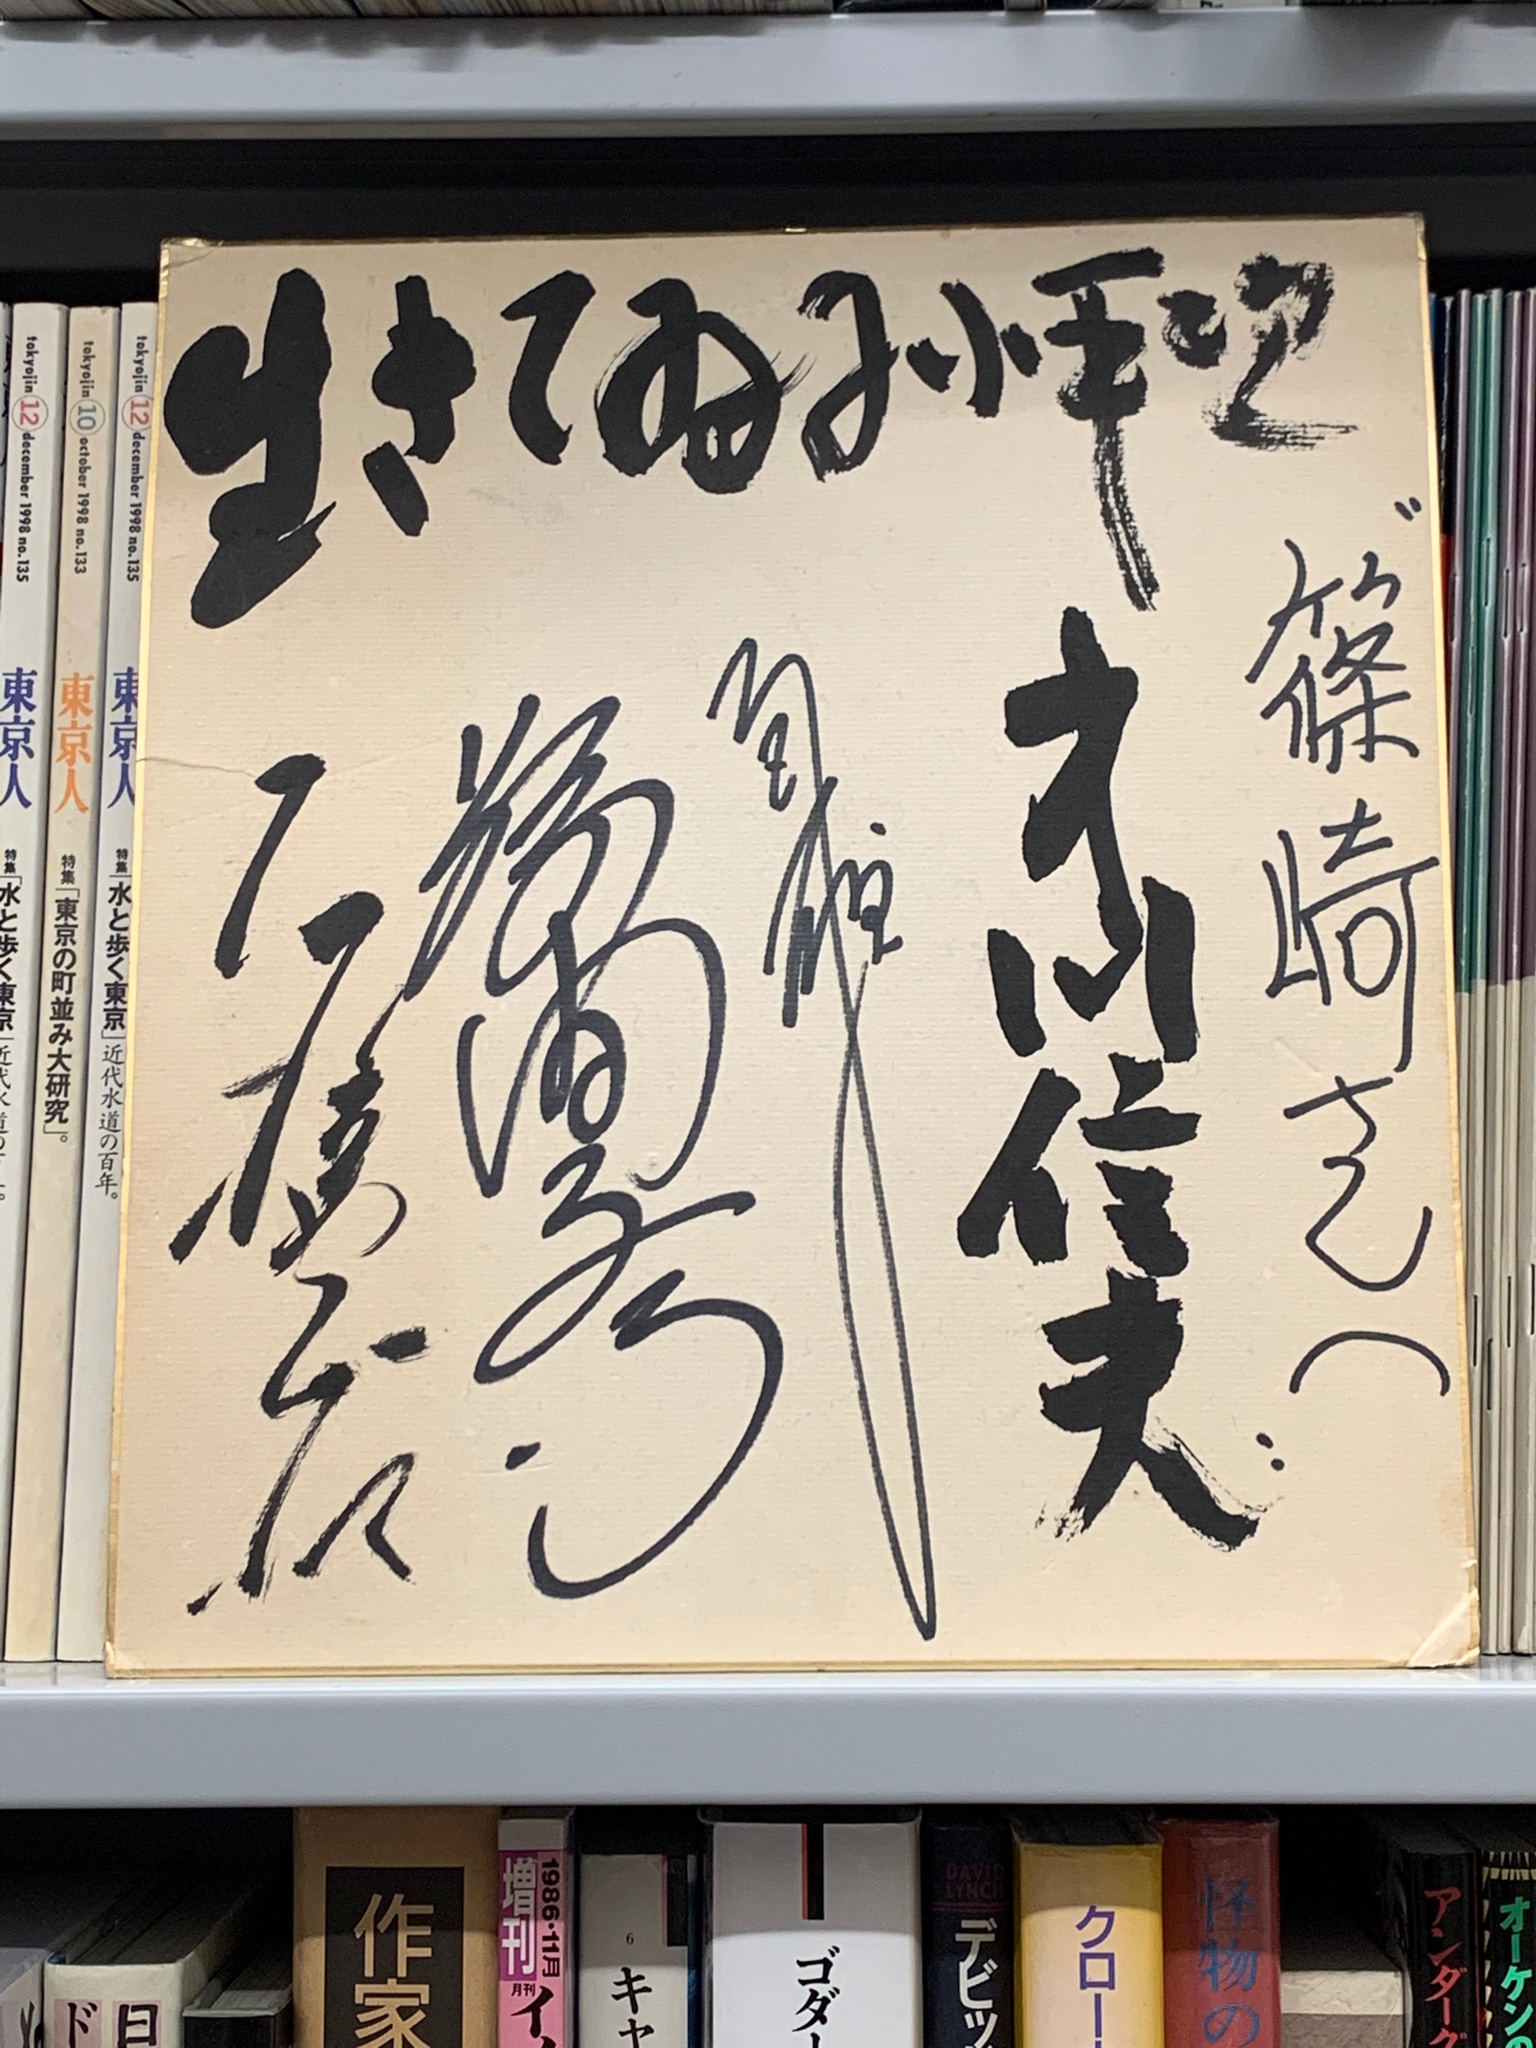 生きてゐる小平次
篠崎さんへ
中川信夫
石橋正次
tokyojin 12 december 1998 no.135
東京人
特集「水と歩く東京」近代水道の
tokyojin 10 october 1998 no.133
東京人
特集「東京の町並み大研究」。
tokyojin 12 december 1998 no.135
東京人
特集「水と歩く東京」近代水道の百年。
ド
日
作家
1986・11月
増刊
月刊イ
6
キャ
ゴダー
DAVID LYNCH
デビッ
クロー
怪物の
アンダーグ
オーケンの